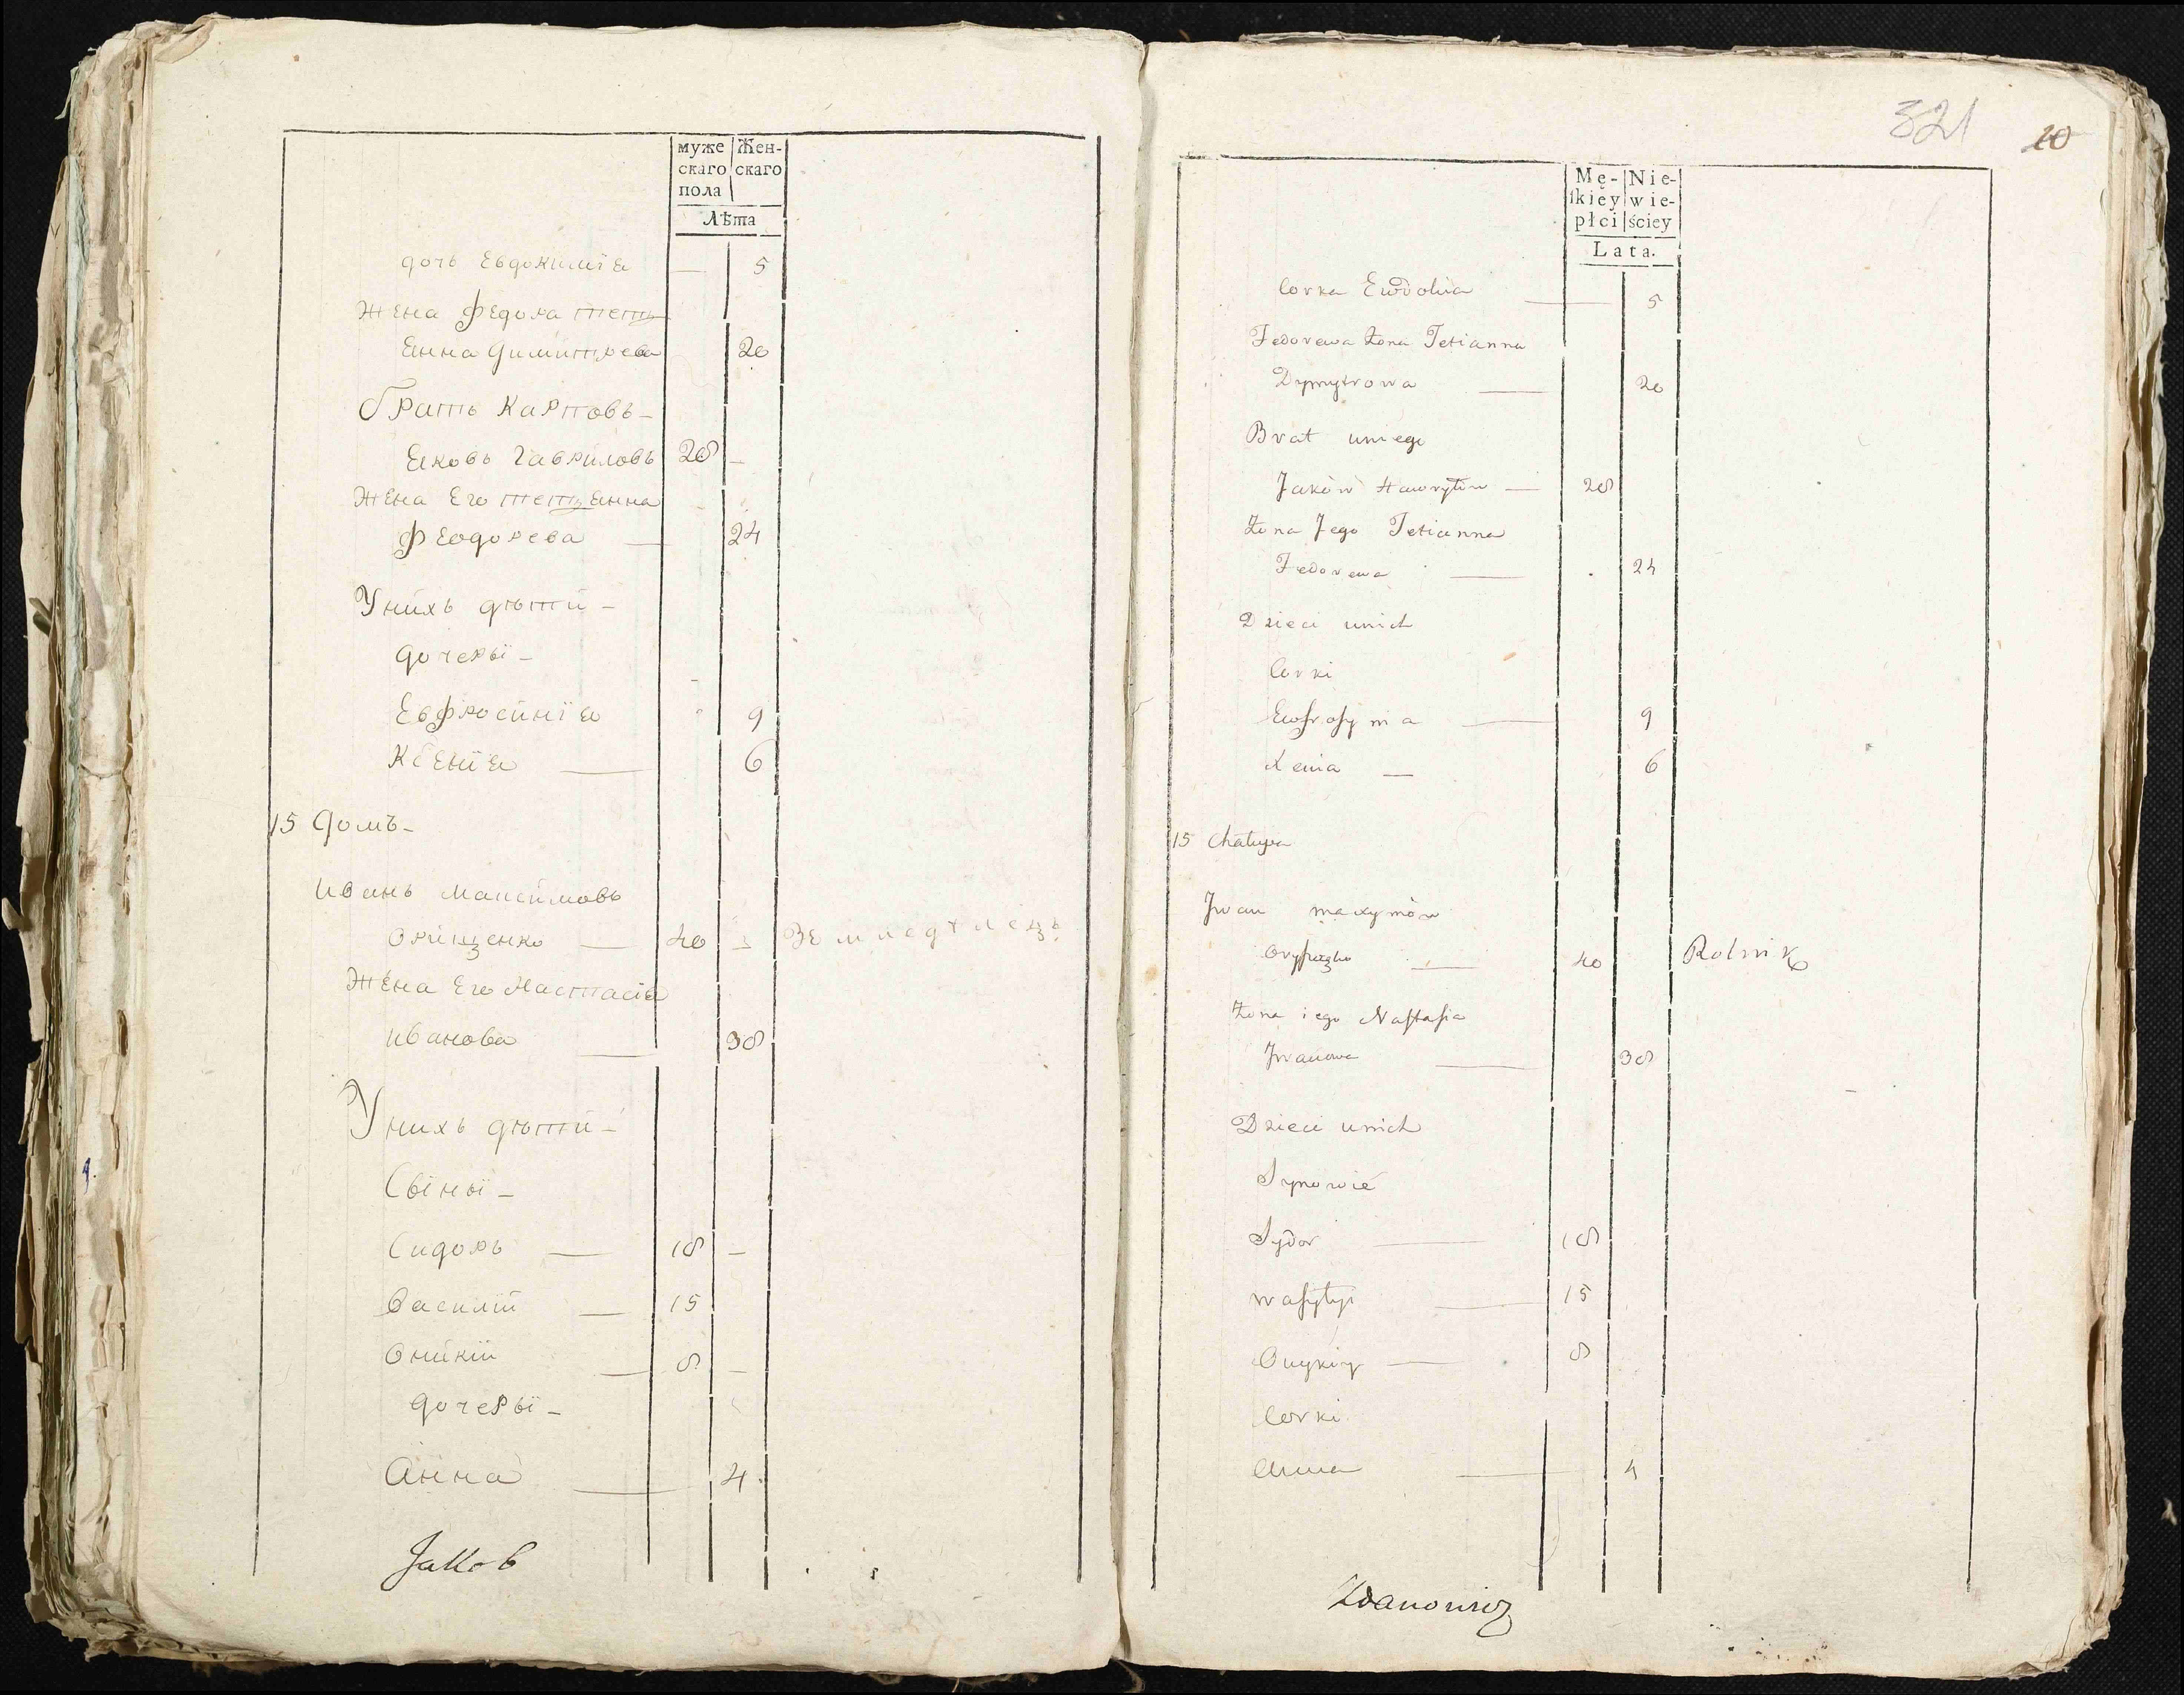 муже
скаго
пола
Жен-
скаго
Лѣта
дочь Евдокимїя — 5
Жена Федора тетъ
янна Димитрева 20
братъ Карповъ -
Яковъ Гавриловъ 28 -
Жена Его тетъянна
Феодорева — 24
Унихъ дѣти -
дочерьї -
Евфросинїя 9
Ксенїя — 6
15 домъ -
Иванъ Максимовъ
Орищенко — 40 - Земледѣлецъ
Жена Его Настасія
иванова — 38
Унихъ дѣти -
Сыіньї -
Сидоръ — 18 -
Василій — 15
Оникій — 8 -
дочерьї -
Анна — 4
Jakob
321 10
Mę-
ſkiey
płci
Nie-
wie-
ściey
Lata.
Corka Ewdokia — 5
Fedorewa Żona Tetianna
Dymytrowa — 20
Brat uniego
Jaków Hawryłów — 28
Żona Jego Tetianna
Fedorewa — 24
Dzieci unich
Corki
Ewfroſynia — 9
Xenia — 6
15 Chałupa
Jwan maxymów
Oryszczenko — 40 Rolnik
Żona iego Naſtaſia
Jwanowa — 38
Dzieci unich
Synowie
Sydor — 18
waſyłyi — 15
Onykiy — 8
Corki
Anna — 4
Zdanowicz